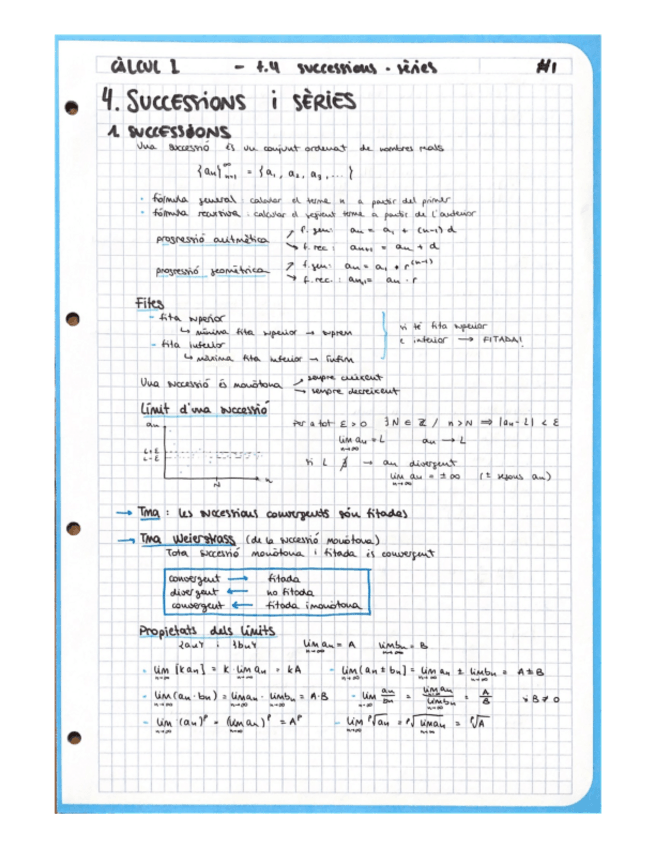 CÀLCUL 1 - t.4 successions - sèries #1
4. SUCCESSIONS i SÈRIES
1. SUCCESSIONS
Una successió és un conjunt ordenat de nombres reals
{an}∞n=1 = {a1, a2, a3, ...}
· fórmula general: calcular el terme n a partir del primer
· fórmula recursiva: calcular el següent terme a partir de l'anterior
progressió aritmètica ↗ f. gen: an = a1 + (n-1) d
↘ f. rec: an+1 = an + d
progressió geomètrica ↗ f. gen: an = a1 · r^(n-1)
→ f. rec.: an+1 = an · r
Fites
- fita superior
↳ mínima fita superior → suprem
- fita inferior
↳ màxima fita inferior → ínfim
si té fita superior
e inferior → FITADA!
Una successió és monòtona ↗ sempre creixent
→ sempre decreixent
Límit d'una successió
an
L+E
L-E
N
Per a tot E > 0 ∃ N ∈ Z / n > N ⟹ |an - L| < E
lim an = L an → L
n→∞
si L ∄ → an divergent
lim an = ±∞ (± segons an)
n→∞
→ Tma: les successions convergents són fitades
→ Tma Weierstrass (de la successió monòtona)
Tota successió monòtona i fitada és convergent
convergent → fitada
divergent ← no fitada
convergent ← fitada i monòtona
Propietats dels límits
{an} i {bn} lim an = A lim bn = B
n→∞ n→∞
- lim [k an] = k · lim an = kA - lim (an ± bn) = lim an ± lim bn = A ± B
n→∞ n→∞ n→∞ n→∞ n→∞
- lim (an · bn) = lim an · lim bn = A·B - lim an/bn = lim an / lim bn = A/B si B ≠ 0
n→∞ n→∞ n→∞ n→∞
- lim (an)^p = (lim an)^p = A^p - lim ᵖ√an = ᵖ√lim an = ᵖ√A
n→∞ n→∞ n→∞ n→∞